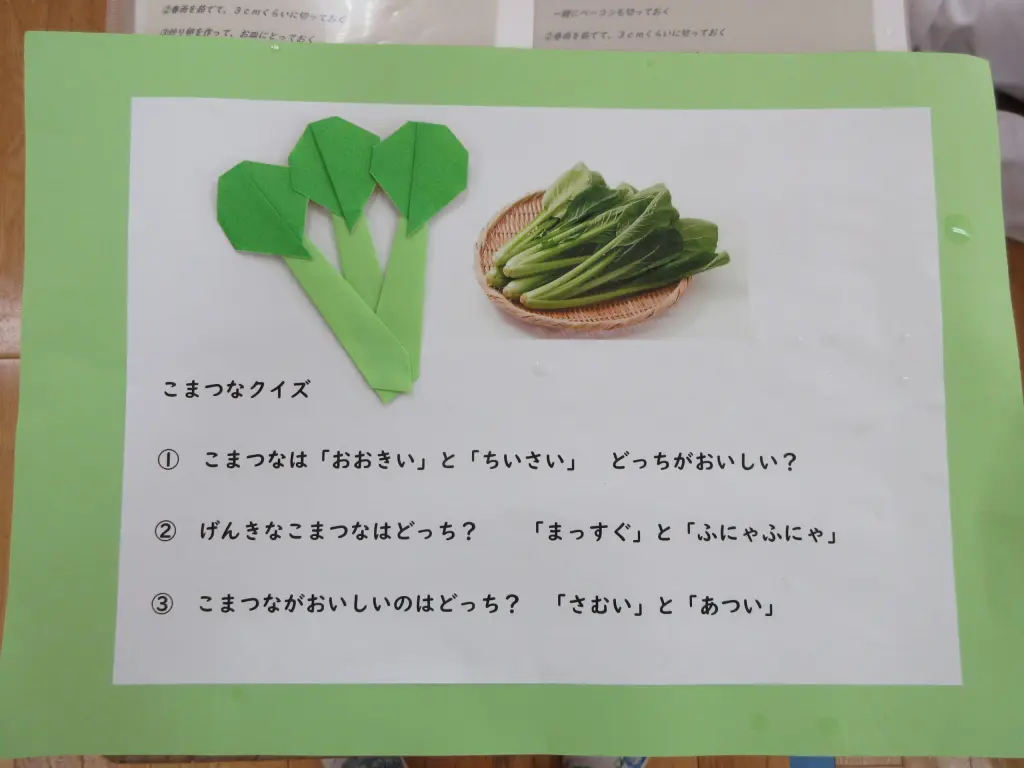 ②春雨を茹でて、3cmくらいに切っておく
③炒り卵を作って、お皿にとっておく
一緒にベーコンも切っておく
②春雨を茹でて、3cmくらいに切っておく
こまつなクイズ
① こまつなは「おおきい」と「ちいさい」 どっちがおいしい？
② げんきなこまつなはどっち？ 「まっすぐ」と「ふにゃふにゃ」
③ こまつながおいしいのはどっち？ 「さむい」と「あつい」